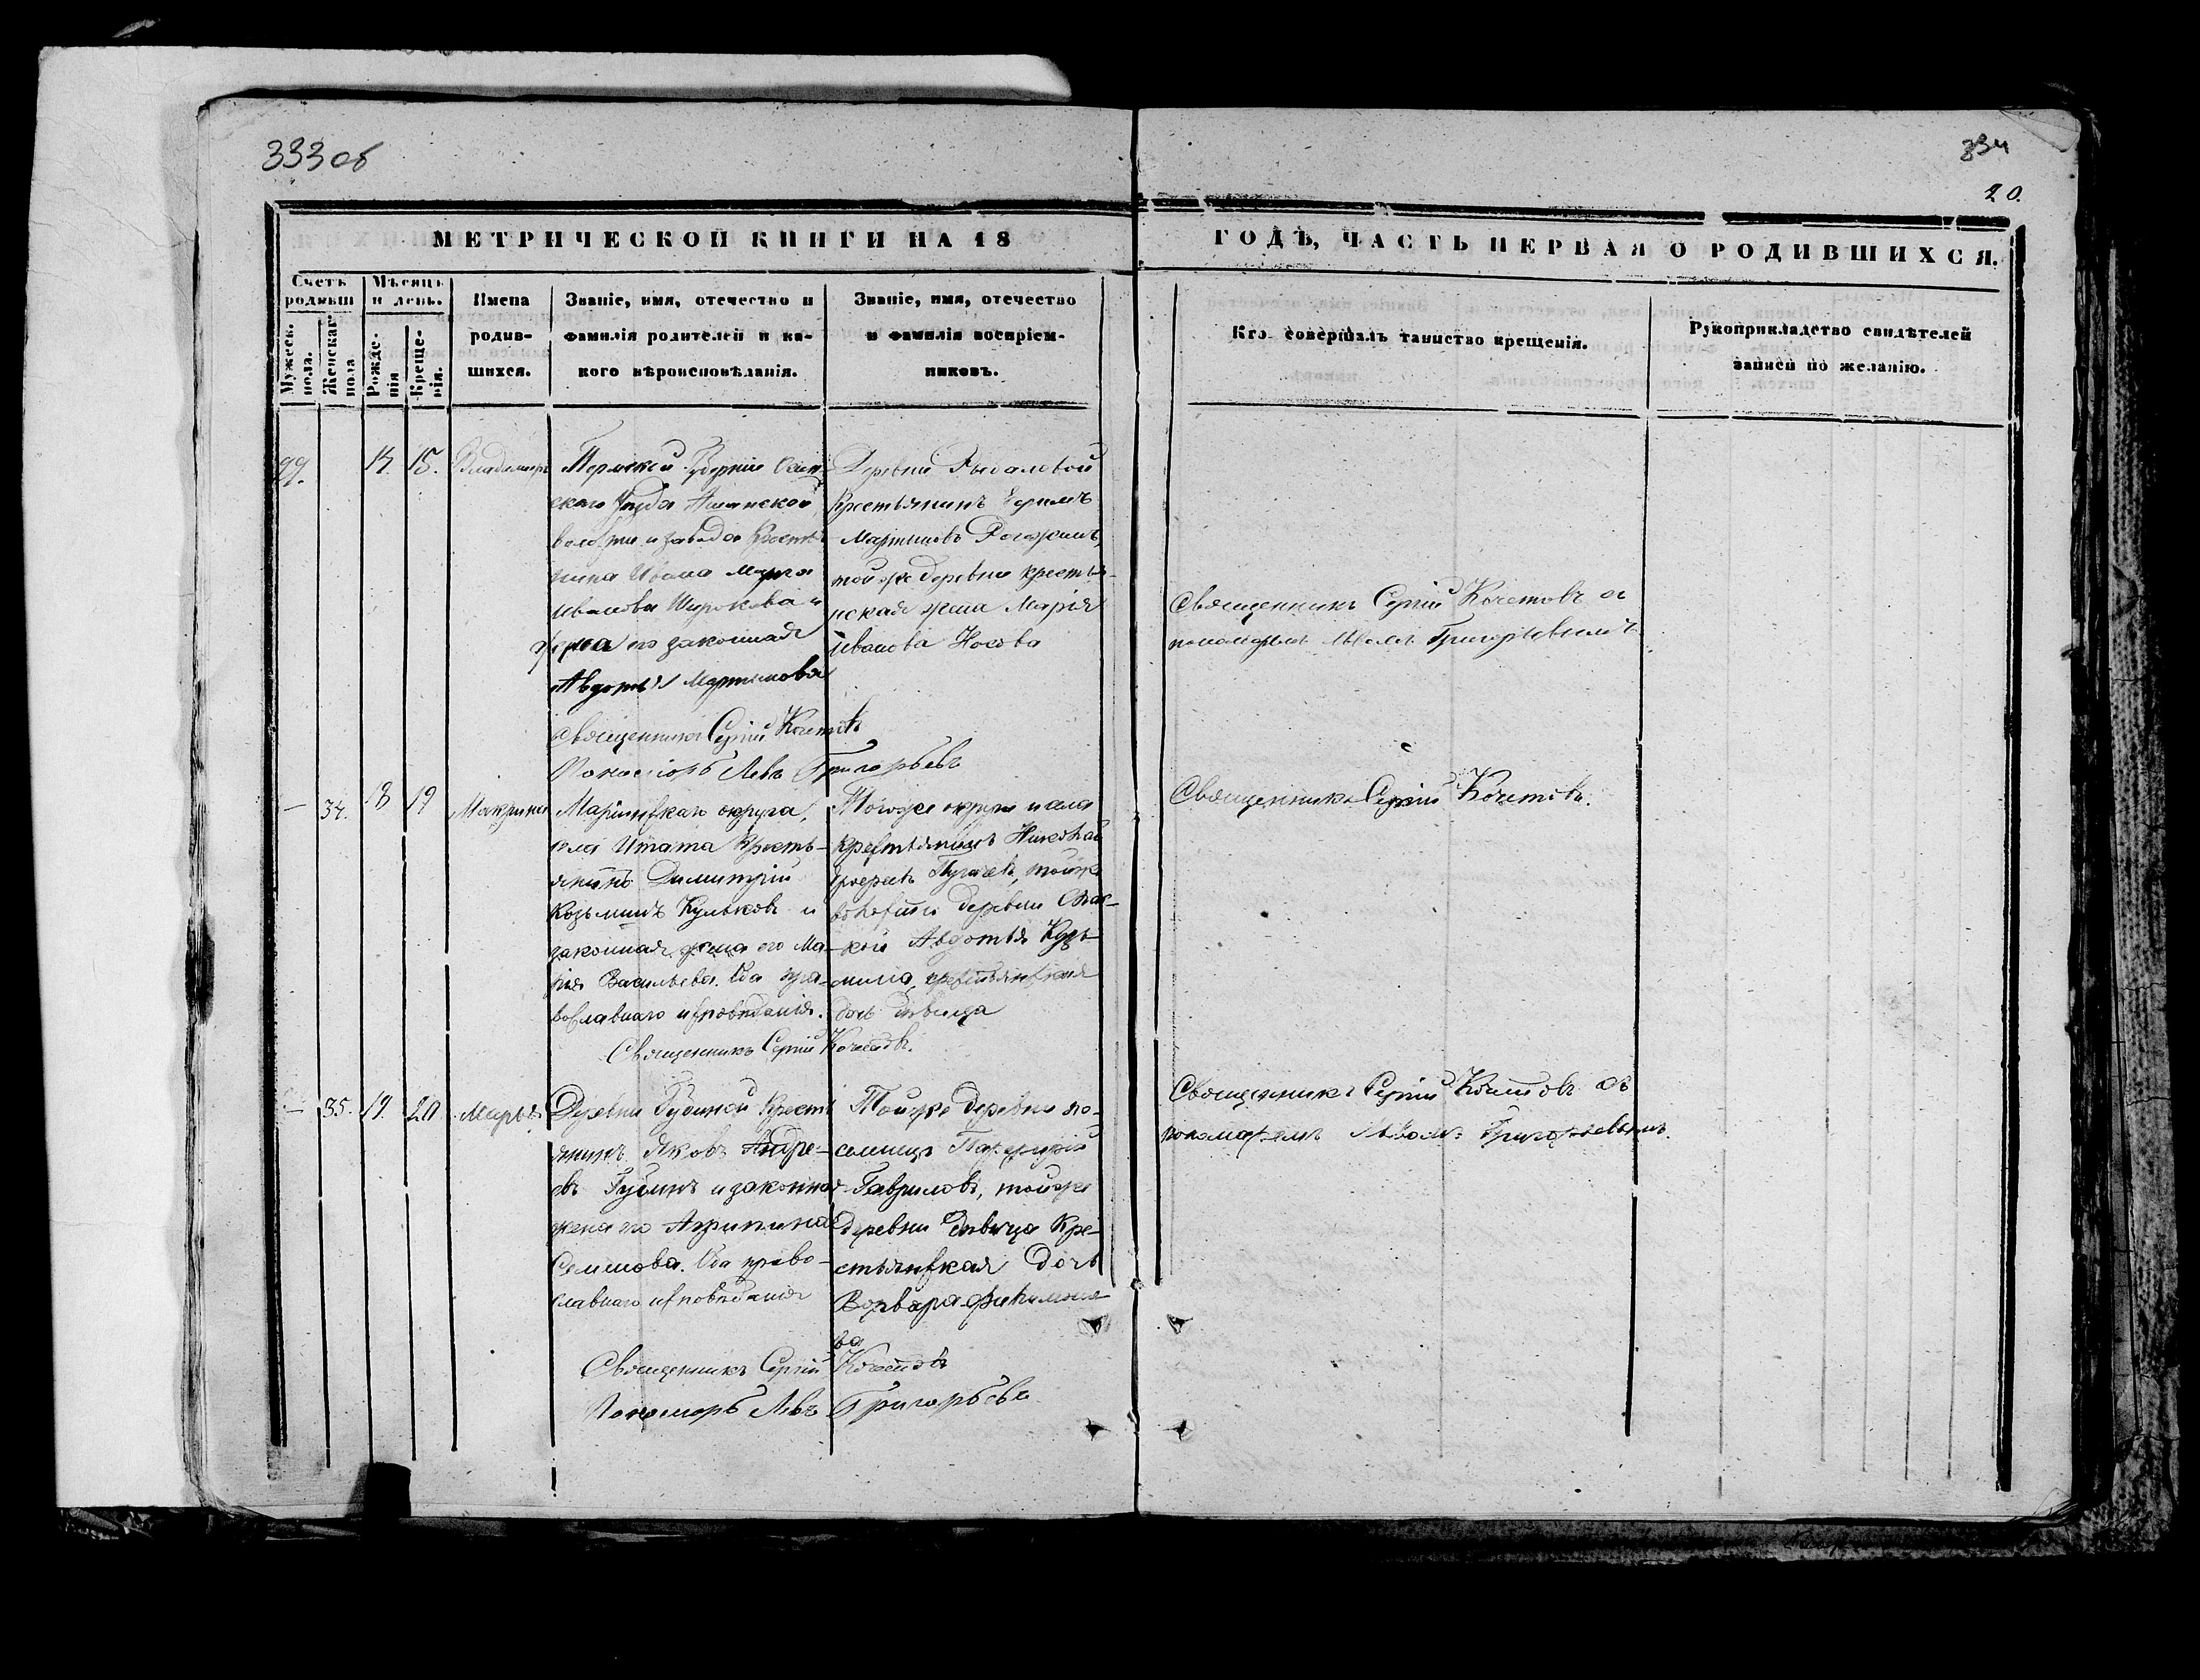 333 об
334
20.
МЕТРИЧЕСКОЙ КНИГИ НА 18
ГОДЪ, ЧАСТЬ ПЕРВАЯ О РОДИВШИХСЯ.
Счетъ родивш
Мужеск. пола.
Женскаг. пола
Мѣсяцъ и день.
Рожденія
Крещенія.
Имена
родив-
шихся.
Званіе, имя, отечество и
фамилія родителей и ка-
кого вѣроисповѣданія.
Званіе, имя, отечество
и фамилія воспріем-
никовъ.
Кто совершалъ таинство крещенія.
Рукоприкладство свидѣтелей
записей по желанію.
14. 15. Владимиръ
Пермской Губерніи
скаго Уѣзда
и завода Кресть
Ивана
Иванова Широкова и
жена его законная
Авдотья Мартынова
Деревни
Крестьянинъ
Мартыновъ Рогожинъ,
той же деревни кресть-
нская жена Марія
Иванова Носова
Священникъ Сергій Кочетовъ съ
пономаремъ Львомъ Григорьевымъ
Священникъ Сергій Кочетовъ
Пономарь Левъ Григорьевъ
— 34. 18 19 Макрина
Маріинскаго округа,
села Итата Кресть-
янинъ Димитрій
Козьминъ Кульковъ и
законная жена его Ма-
рія Васильева. Оба пра-
вославнаго исповѣданія.
Тогоже округа и села
крестьянинъ Николай
Пугачевъ, тойже
волости деревни
кой Авдотья Кузь-
мина, крестьянская
дочь дѣвица
Священникъ Сергій Кочетовъ.
Священникъ Сергій Кочетовъ.
— 35. 19. 20 Марья
Деревни Губиной Кресть
янинъ Яковъ Андре-
евъ Губинъ и законная
жена его Агрипина
Семенова. Оба право-
славнаго исповѣданія
Тойже деревни по-
селенецъ Парфирій
Гавриловъ, тойже
деревни дѣвица Кре-
стьянская дочь
Варвара Филимоно
ва
Священникъ Сергій Кочетовъ съ
пономаремъ Львомъ Григорьевымъ.
Священникъ Сергій Кочетовъ
Пономарь Левъ Григорьевъ